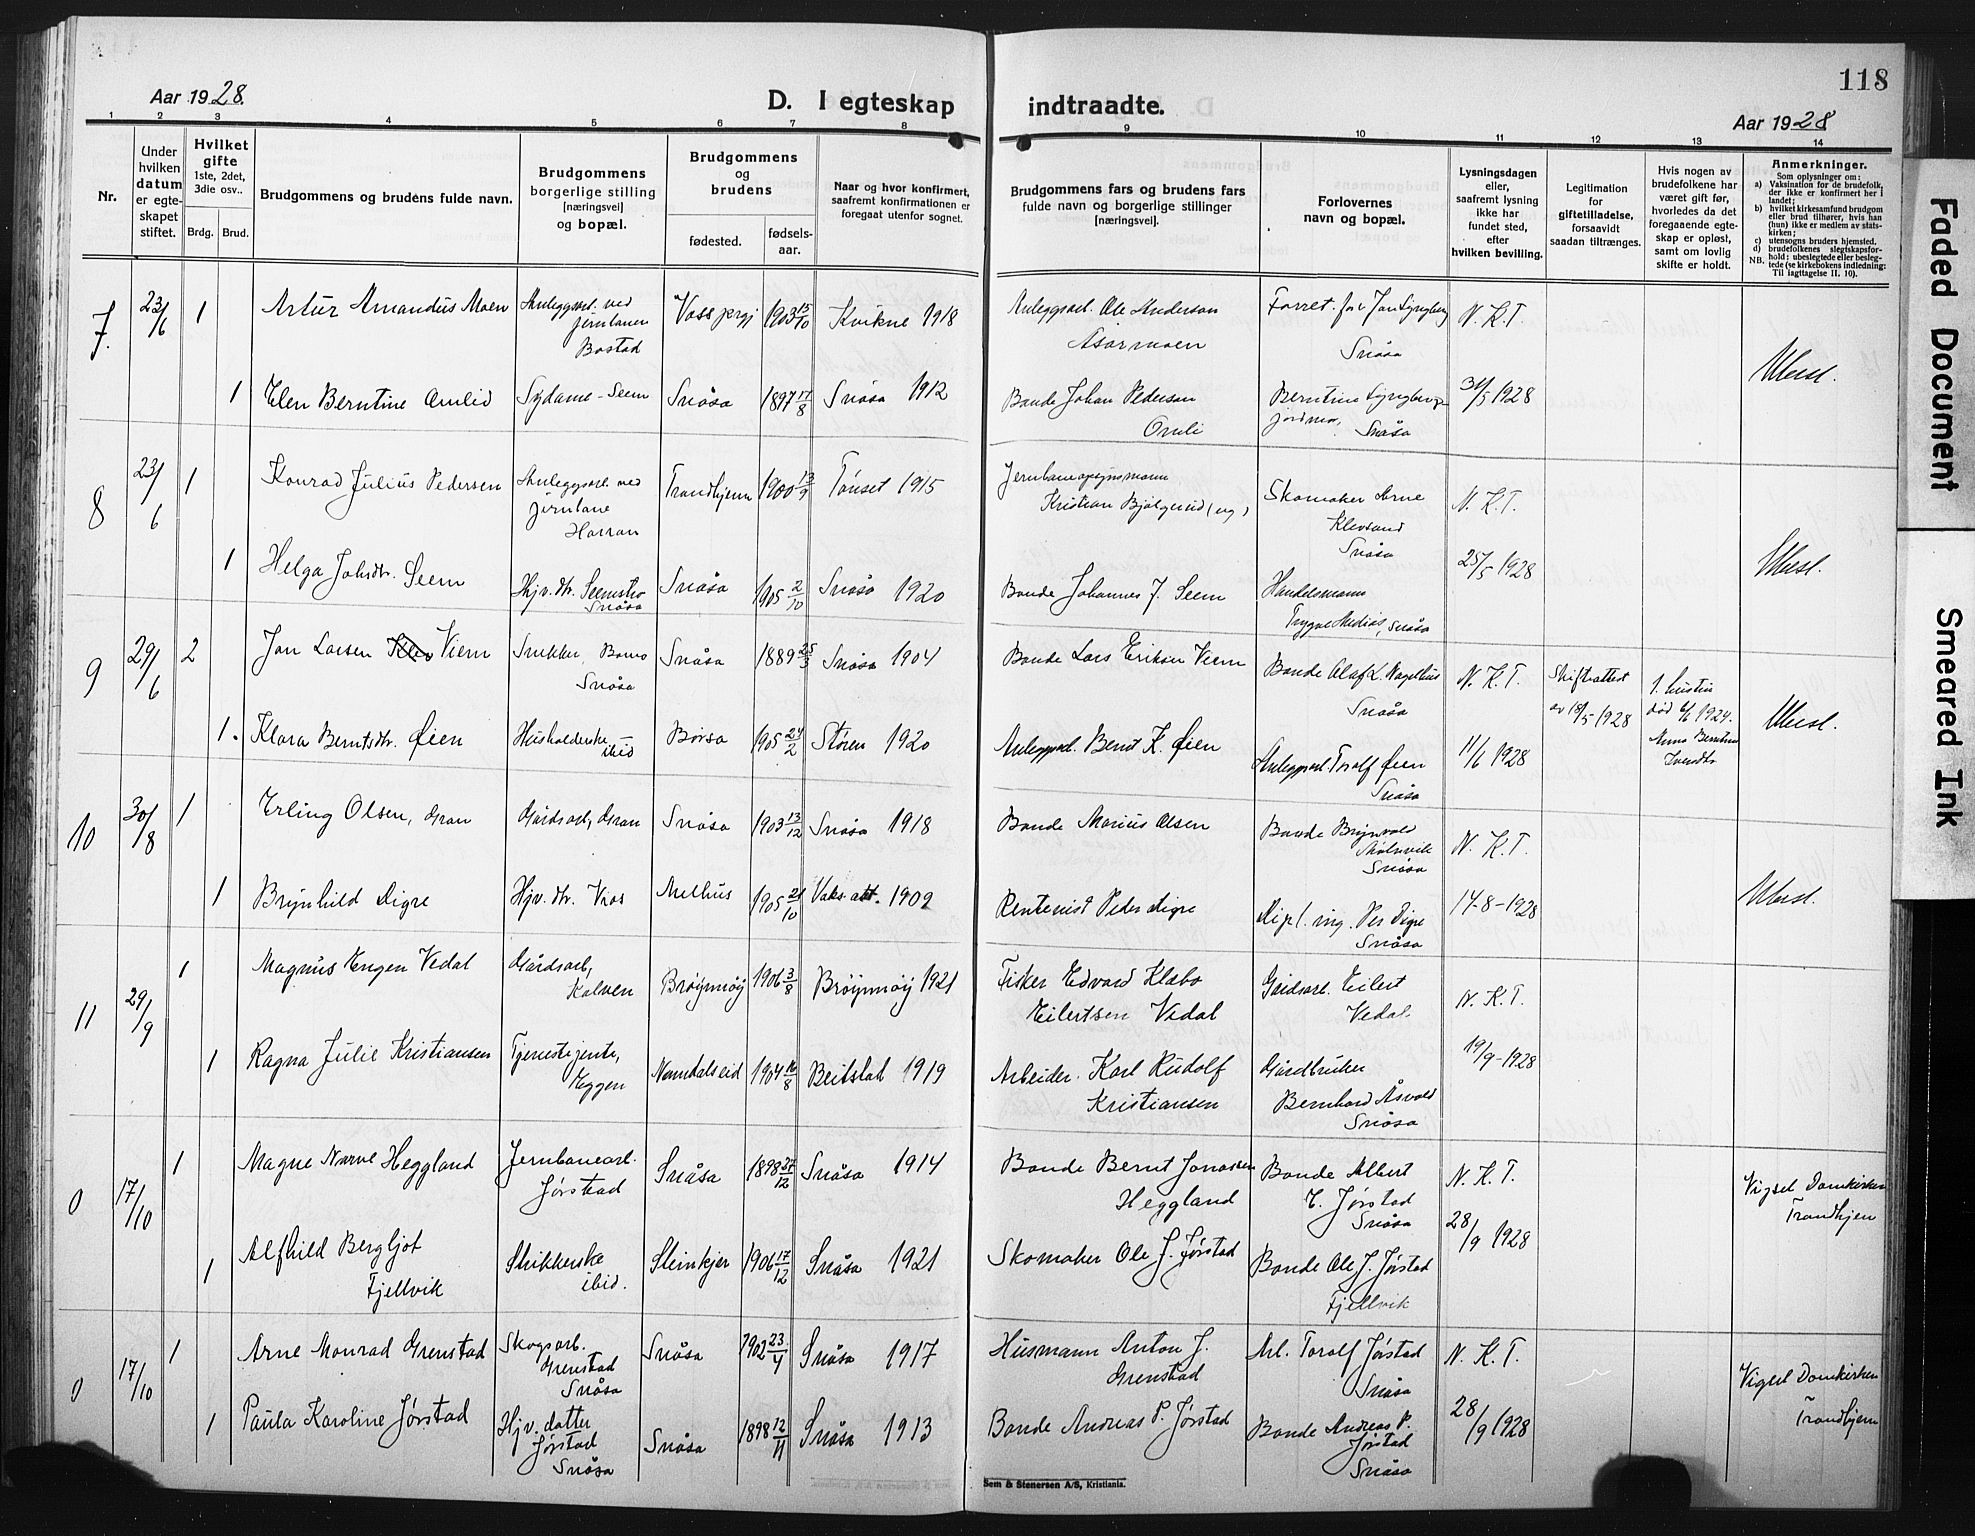 118
Aar 1928.
D. I egteskap indtraadte.
Aar 1928
1 2 3 4 5 6 7 8 9 10 11 12 13 14
Nr.
Under hvilken datum er egteskapet stiftet.
Hvilket gifte 1ste, 2det, 3die osv..
Brdg. Brud.
Brudgommens og brudens fulde navn.
Brudgommens borgerlige stilling [næringsvei] og bopæl.
Brudgommens og brudens
fødested.
fødselsaar.
Naar og hvor konfirmert, saafremt konfirmationen er foregaat utenfor sognet.
Brudgommens fars og brudens fars fulde navn og borgerlige stillinger [næringsvei].
Forlovernes navn og bopæl.
Lysningsdagen eller, saafremt lysning ikke har fundet sted, efter hvilken bevilling.
Legitimation for giftetilladelse, forsaavidt saadan tiltrænges.
Hvis nogen av brudefolkene har været gift før, hvorledes da det foregaaende egteskap er opløst, samt om lovlig skifte er holdt.
Anmerkninger.
Som oplysninger om:
a) Vaksination for de brudefolk, der ikke er konfirmert her i landet;
b) hvilket kirkesamfund brudgom eller brud tilhører, hvis han (hun) ikke er medlem av statskirken;
c) utensogns bruders hjemsted.
d) brudefolkenes slegtskapsforhold: ubeslegtede eller beslegtede (se kirkebokens indledning:
NB. Til iagttagelse II. 10).
7. 23/6 1 Artur Amandus Moen Anleggsarb. ved jernbanen 1903 15/10 Kvikne 1918 Anleggsarb. Ole Anderson N. K. T.
Snåsa
1 Elen Berntine Omlid Seem Snåsa 1897 17/8 Snåsa 1912 Bonde Johan Pederson Omli Berntine Lyngberg jordmor, Snåsa 31/5 1928 Ubesl.
8 23/6 1 Konrad Julius Pedersen Anleggsarb. ved jernbane Harran Trondhjem 1900 13/9 Tönset 1915 Kristian Skomaker Arne Klevsand Snåsa N. K. T.
1 Helga Johsdtr. Seem Hjv. dtr. Seemstro Snåsa Snåsa 1905 2/10 Snåsa 1920 Bonde Johannes J. Seem Handelsmann Trygve Medias, Snåsa 25/5 1928 Ubesl.
9 29/6 2 Jon Larsen Viem Snekker, Snåsa Snåsa 1889 25/3 Snåsa 1904 Bonde Lars Eriksen Viem Bonde Olaf L. Nagelhus Snåsa N. K. T. Skifteattest av 18/5 1928 1. hustru død 6/6 1924.
1. Klara Berntsdtr. Øien Husholderske ibid Børsa 1905 24/2 Støren 1920 Anleggsarb. Bernt K. Øien Anleggsarb. Toralf Øien Snåsa 11/6 1928 Ubesl.
10 30/8 1 Erling Olsen, Gran Gårdsarb, Gran Snåsa 1903 13/12 Snåsa 1918 Bonde Marius Olsen Bonde Brynvald Snåsa N. K. T.
1 Brynhild Digre Hjv. dtr. Vios Melhus 1905 21/10 Vaks. att. 1909 Rentenist Peder Digre Dipl. ing. Per Digre Snåsa 14-8-1928 Ubesl.
11 29/9 1 Magnus Engen Vedal Gårdsarb, Kalven Brøynnøy 1906 3/8 Brøynnøy 1921 Fisker Edvard Klabo Eilertsen Vedal Gårdsarb. Eilert Vedal. N. K. T.
1 Ragna Julie Kristiansen Tjenestejente, Eggen Namdalseid 1904 16/8 Beitstad 1919 Arbeider. Karl Rudolf Kristiansen Gårdbruker Bernhard Åsvold Snåsa 19/9-1928
0 17/10 1 Magne Narve Heggland Jernbanearb. Jørstad Snåsa 1898 27/12 Snåsa 1914 Bonde Bernt Jonassen Heggland Bonde Albert E. Jørstad Snåsa N. K. T. Vigsel Domkirken Trondhjem
1 Alfhild Bergljot Fjellvik Strikkerske ibid. Steinkjer 1906 17/12 Snåsa 1921 Skomaker Ole J. Jørstad Bonde Ole J. Jørstad Fjellvik 28/9 1928
0 17/10 1 Arne Monrad Grenstad Skogsarb. Grenstad Snåsa Snåsa 1902 23/4 Snåsa 1917 Husmann Anton J. Grenstad Arb. Toralf Jørstad Snåsa N. K. T. Vigsel Domkirken Trondhjem
1 Paula Karoline Jørstad Hjv. datter Jørstad Snåsa Snåsa 1898 12/11 Snåsa 1913 Bonde Andreas P. Jørstad Bonde Andreas P. Jørstad Snåsa 28/9 1928
Sem & Stenersen A/S, Kristiania.
Faded Document
Smeared Ink